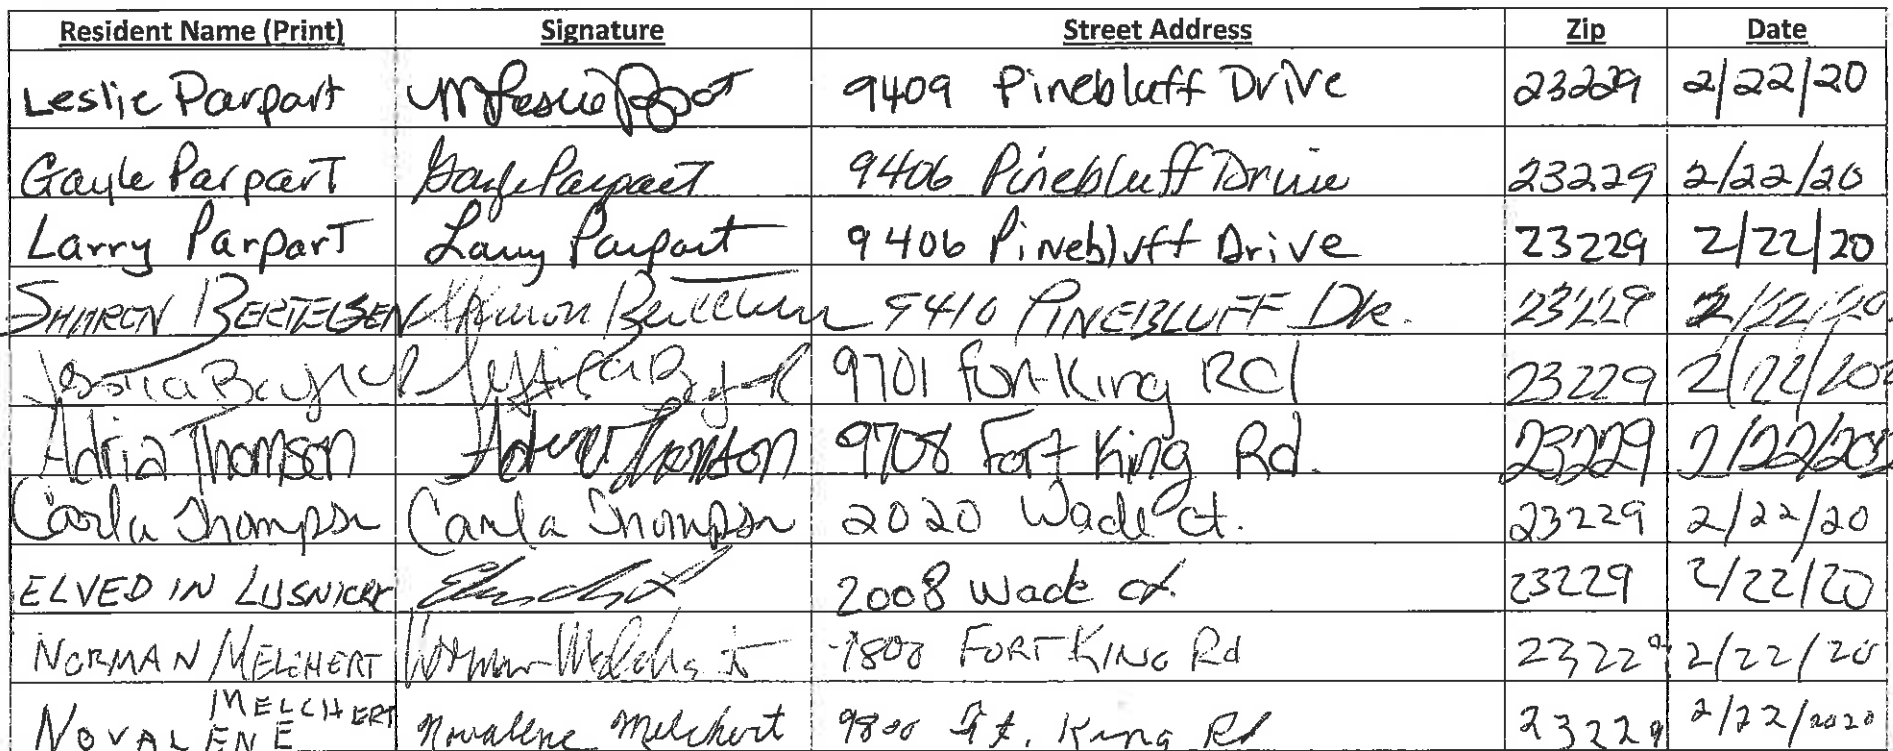 Resident Name (Print) Signature Street Address Zip Date
Leslie Parpart 9409 Pinebluff Drive 23229 2/22/20
Gayle ParparT Gayle Parpart 9406 Pinebluff Drive 23229 2/22/20
Larry ParparT Larry Parpart 9406 Pinebluff Drive 23229 2/22/20
SHAREN BERTELSEN 9410 PINEBLUFF DR. 23229 2/22/20
9701 Fort King Rd 23229 2/22/202
Adria Thomson 9708 Fort King Rd. 23229 2/22/202
Carla Thompson Carla Thompson 2020 Wade Ct. 23229 2/22/20
ELVED IN 2008 Wade ct. 23229 2/22/20
NORMAN MELCHERT Norman Melchert 9800 FORT KING Rd 23229 2/22/20
MELCHERT
NOVALENE Novalene Melchert 9800 Ft. King Rd 23229 2/22/2020